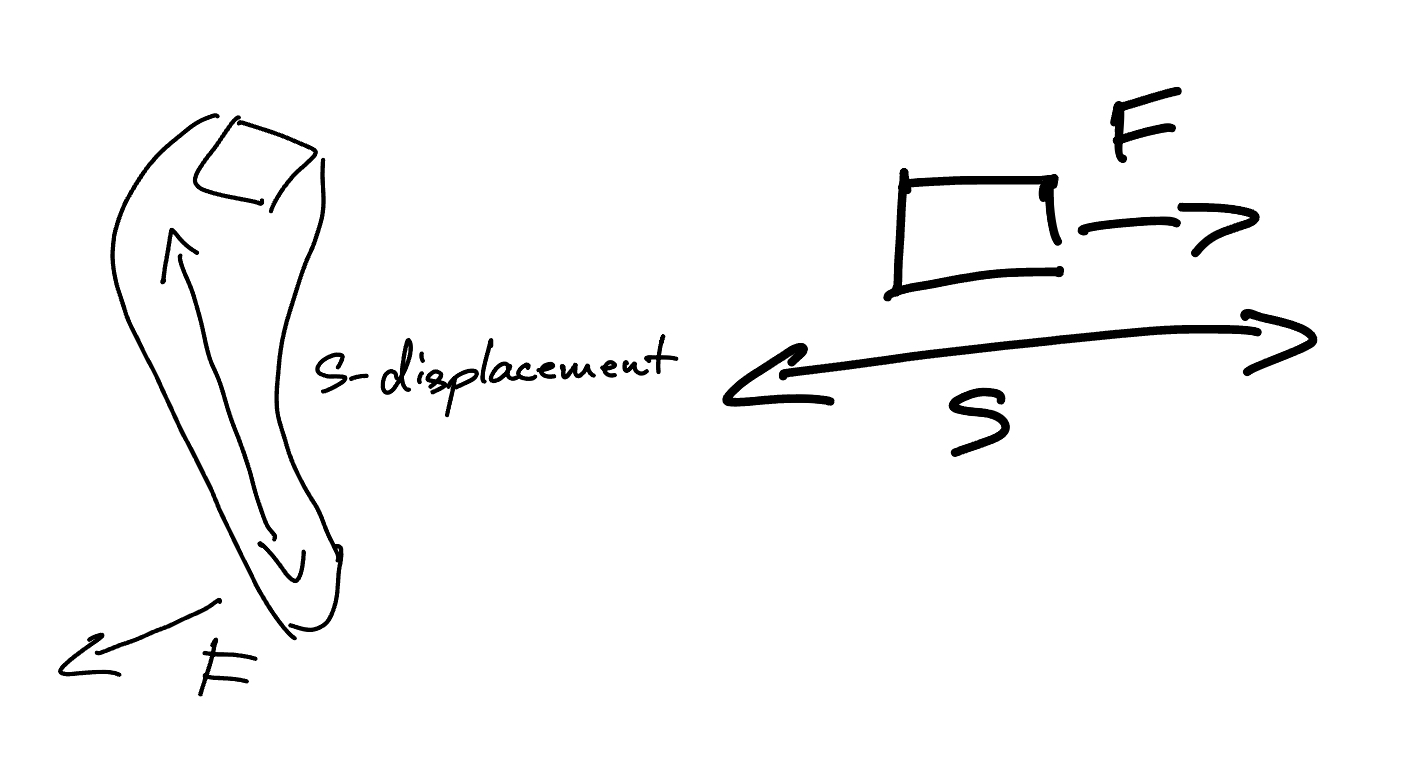 F
S-displacement
S
F